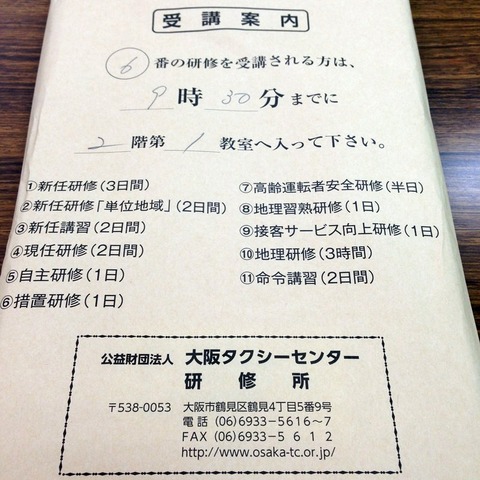 受講案内
6 番の研修を受講される方は、
9 時 30 分までに
2 階第 1 教室へ入って下さい。
①新任研修（3日間）
②新任研修「単位地域」（2日間）
③新任講習（2日間）
④現任研修（2日間）
⑤自主研修（1日）
⑥措置研修（1日）
⑦高齢運転者安全研修（半日）
⑧地理習熟研修（1日）
⑨接客サービス向上研修（1日）
⑩地理研修（3時間）
⑪命令講習（2日間）
公益財団法人 大阪タクシーセンター
研修所
〒538-0053 大阪市鶴見区鶴見4丁目5番9号
電話（06）6933−5616〜7
FAX（06）6933−5612
http://www.osaka-tc.or.jp/